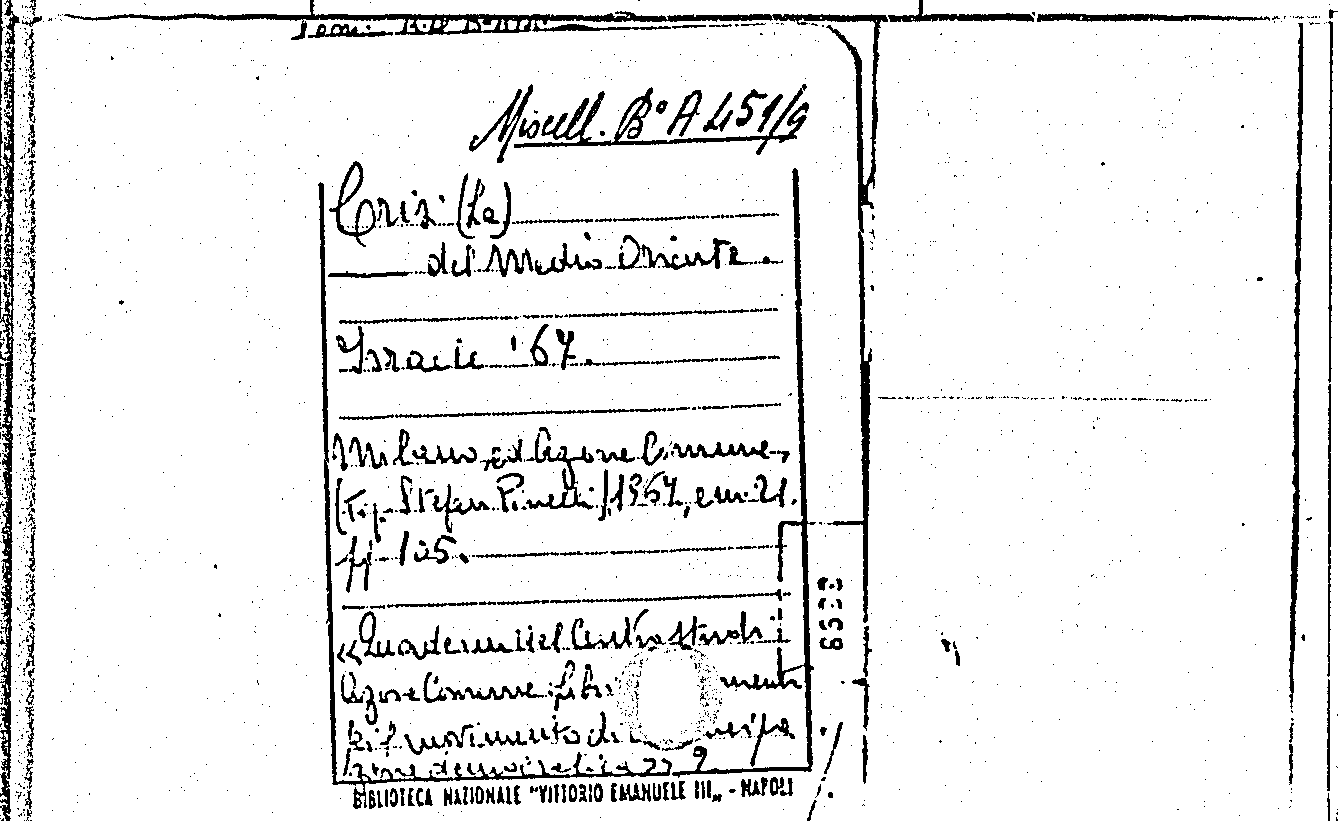 Miscell. B° A 451/9
Crisi (La)
del Medio Oriente.
Israele '67.
Milano, ed Azione Comune,
(Tip. Stefan Pinelli), 1967, cm. 21.
pp. 105.
«Quaderni del Centro Studi
Azione Comune
per il movimento di
zione democratica 9.
6533
BIBLIOTECA NAZIONALE "VITTORIO EMANUELE III„ - NAPOLI